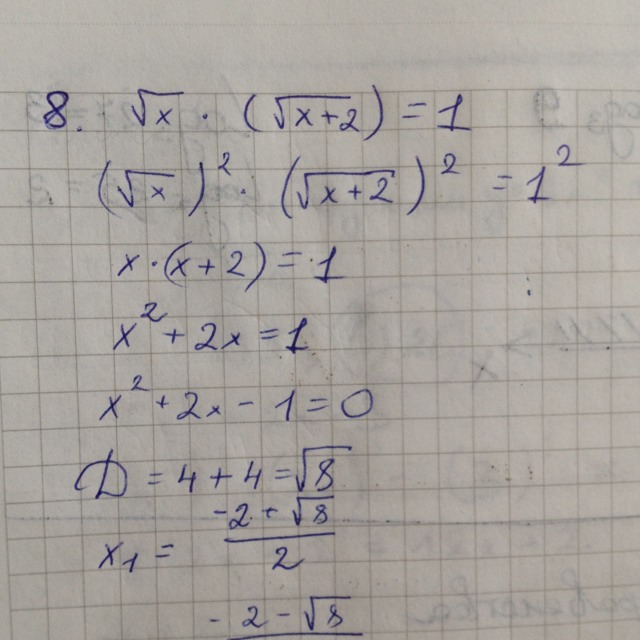 8. √x · (√x+2) = 1
(√x)² · (√x+2)² = 1²
x·(x+2) = 1
x² + 2x = 1
x² + 2x - 1 = 0
D = 4 + 4 = √8
x₁ = (-2 + √8)/2
-2 - √8